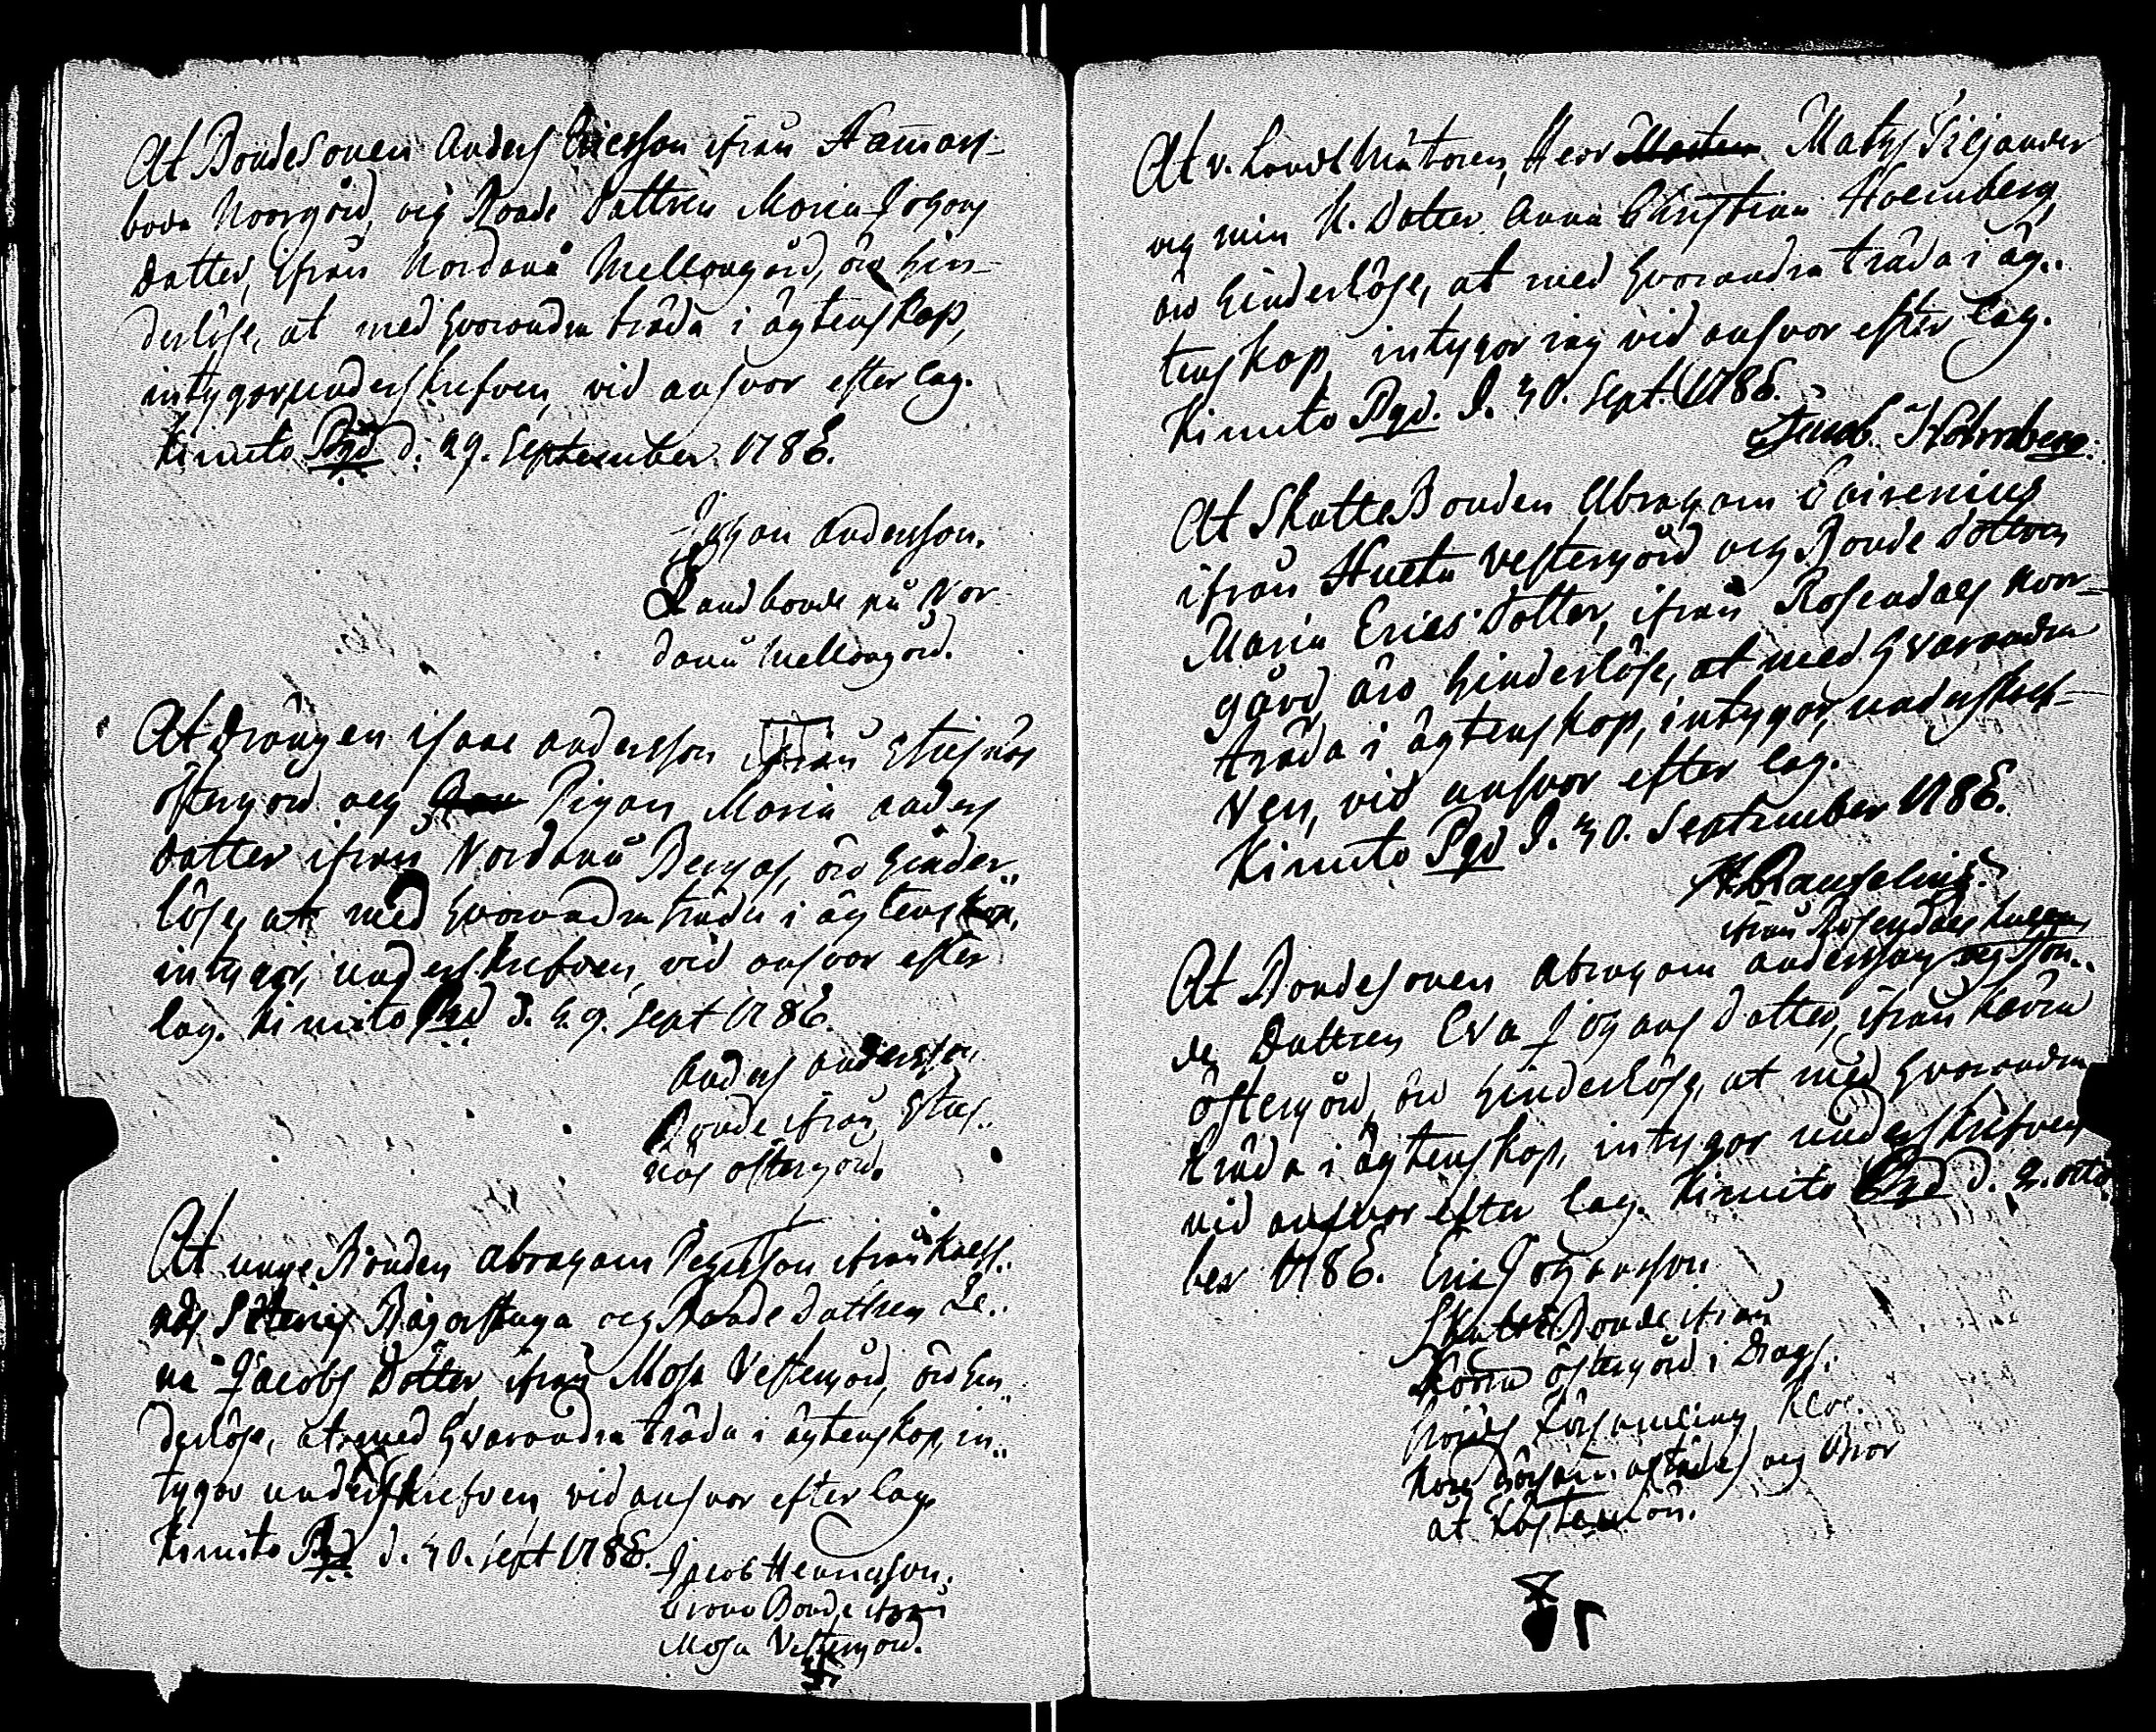 At Bondesonen Anders Ericsson ifrån Hammars-
boda Norrgård, och Bonde Dottren Maria Johans
Dotter, ifrån Nordanå Mellangård, äro hin-
derlöse, at med hvarandra träda i ägtenskap,
intygar underskrefven, vid ansvar efter lag.
Kimito Pgd d. 29. September 1786.
Johan Andersson.
Landbonde på Nor-
danå Mellangård.
At Drängen Isaac Andersson ifrån Strejnäs
Östergård och Pigan Maria Anders
Dotter ifrån Nordanå Bergas, äro hinder-
löse, at med hvarandra träda i ägtenskap,
intygar, underskrefven, vid ansvar efter
lag. Kimito Pgd d. 29. Sept 1786.
Anders Andersson
Bonde ifrån
näs Östergård.
At unge Bonden Abraham ifrån
Säteris Bagarstuga och Bonde Dottren Le-
na Jacobs Dotter, ifrån Mosa Vestergård, äro hin-
derlöse, at med hvarandra träda i ägtenskap, in-
tygar underskrefven, vid ansvar efter lag.
Kimito Pgd. d. 30. Sept 1786.
Jacob Henricsson.
Bonde ifrån
Mosa Vestergård.
At v. Landtmätaren, Herr Mats Tiljander
och min K. Dotter Anna Christina Holmberg,
äro hinderlöse, at med hvarandra träda i äg-
tenskap, intygar jag vid ansvar efter lag.
Kimito Pgd. d. 30. Sept. 1786.
Jacob Holmberg.
At SkatteBonden Abraham
ifrån Vestergård och Bonde dottren
Maria Erics Dotter, ifrån Rosendals Norr-
gård äro hinderlöse, at med hvarandra
träda i ägtenskap, intygar, underskref-
ven, vid ansvar efter lag.
Kimito Pgd d. 30. September 1786.
ifrån Rosendals
At Bondesonen Abraham Andersson och Bon-
de Dottren Eva Johans dotter, ifrån
Östergård, äro hinderlöse, at med hvarandra
träda i ägtenskap, intygar underskrefven
vid ansvar efter lag. Kimito Pgd d. 2. Octo-
ber 1786. Eric Johansson
SkatteBonde ifrån
Östergård i Drags-
fjärds Församling,
och Bror
åt Fästemön.